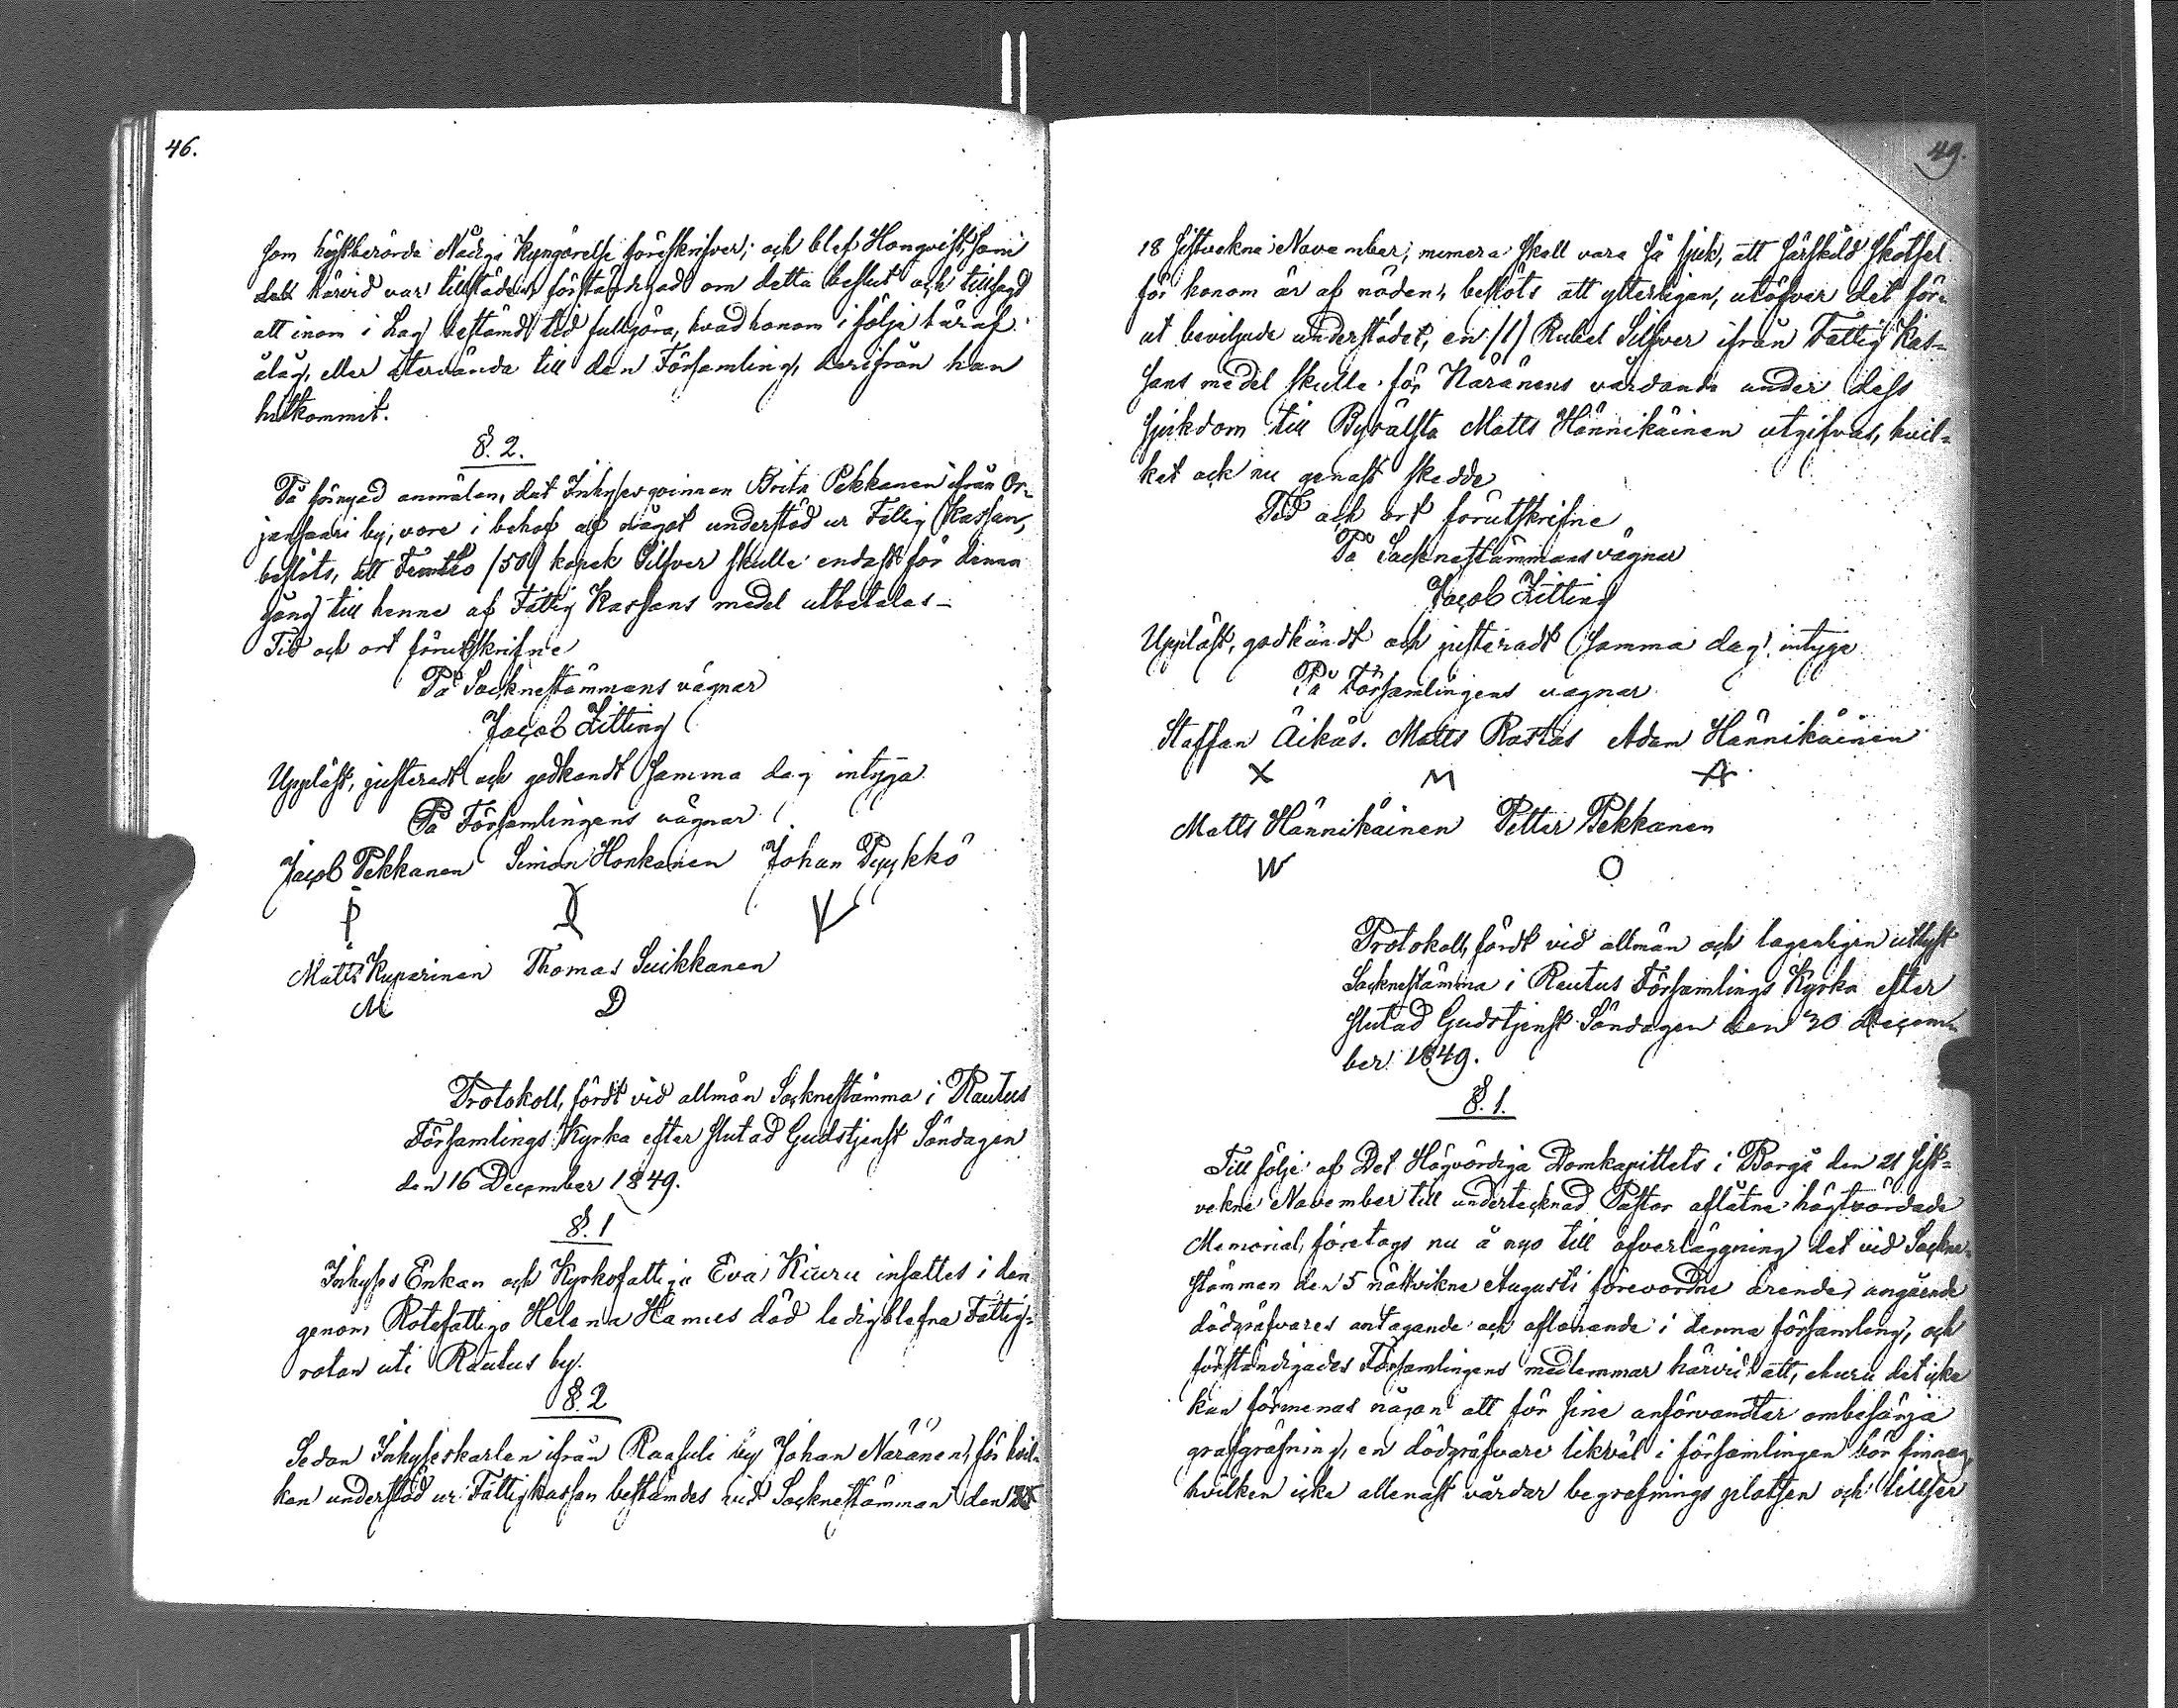 46.
som högstberörde Nådiga Kungörelse föreskrifver; och blef Honqvist, som
härvid var tillstädes, förständigad om detta beslut och tillsagd
att inom i Lag bestämd tid fullgöra, hvad honom i följe häraf
ålåg, eller återvända till den Församling, derifrån han
hitkommit.
§. 2.
På förnyad anmälan, det Inhyses qvinnan Brita Pekkanen ifrån Or-
jansaari by, vore i behof af något understöd ur Fattig Kassan,
beslöts, att Femtio /50/ kopek Silfver skulle endast för denna
gång till henne af Fattig Kassans medel utbetalas –
Tid och ort förutskrifne
På Socknestämmans vägnar
Jacob Zitting
Uppläst, justeradt och godkändt samma dag intyga
På Församlingens vägnar
Jacob Pekkanen Simon Honkanen Johan Pyykkö
Matts Kuparinen Thomas Suikkanen
M D
Protokoll, fördt vid allmän Socknestämma i Rautus
Församlings Kyrka efter slutad Gudstjenst Söndagen
den 16 December 1849.
§. 1
Inhyses Enkan och Kyrkofattiga Eva Kiuru insattes i den
genom Rotefattiga Helena Hamus död ledigblefna Fattig-
rotan uti Rautus by.
§. 2
Sedan Inhyseskarlen ifrån Raasuli by Johan Näränen, för hvil-
ken understöd ur Fattigkassan bestämdes vid Socknestämman den
49.
18 sistvekne November, numera skall vara så sjuk, att särskild skötsel
för honom är af nöden, beslöts att ytterligare, utöfver det för-
ut beviljade understödet, en /1/ Rubel Silfver ifrån Fattig Kas-
sans medel skulle för Näränens vårdande under dess
sjukdom till Byrålsta Matts Hännikäinen utgifvas, hvil-
ket ock nu genast skedde
Tid och ort förutskrifne
På Socknestämmans vägnar
Jacob Zitting
Uppläst, godkändt och justeradt samma dag, intyga
På Församlingens vägnar
Staffan Äikäs. Matts Rastas Adam Hännikäinen
X M A
Matts Hännikäinen Petter Pekkanen
W O
Protokoll, fördt vid allmän och lagenligen utlyst
Socknestämma i Rautus Församlings Kyrka efter
slutad Gudstjenst Söndagen den 30 Decem-
ber 1849.
§. 1.
Till följe af Det Högvördiga Domkapitlets i Borgå den 21 sist-
vekne November till undertecknad Pastor aflåtne högtvördade
Memorial, företogs nu å nyo till öfverläggning det vid Sockne-
stämman den 5 nästvikne Augusti förevordne ärende, angående
dödgräfvares antagande och aflönande i denna församling, och
förständigades Församlingens medlemmar härvid att, ehuru det icke
kan förmenas någon att för sine anförvandter ombesörja
grafgräfning, en dödgräfvare likväl i församlingen bör finnas,
hvilken icke allenast vårdar begrafnings platsen och tillser